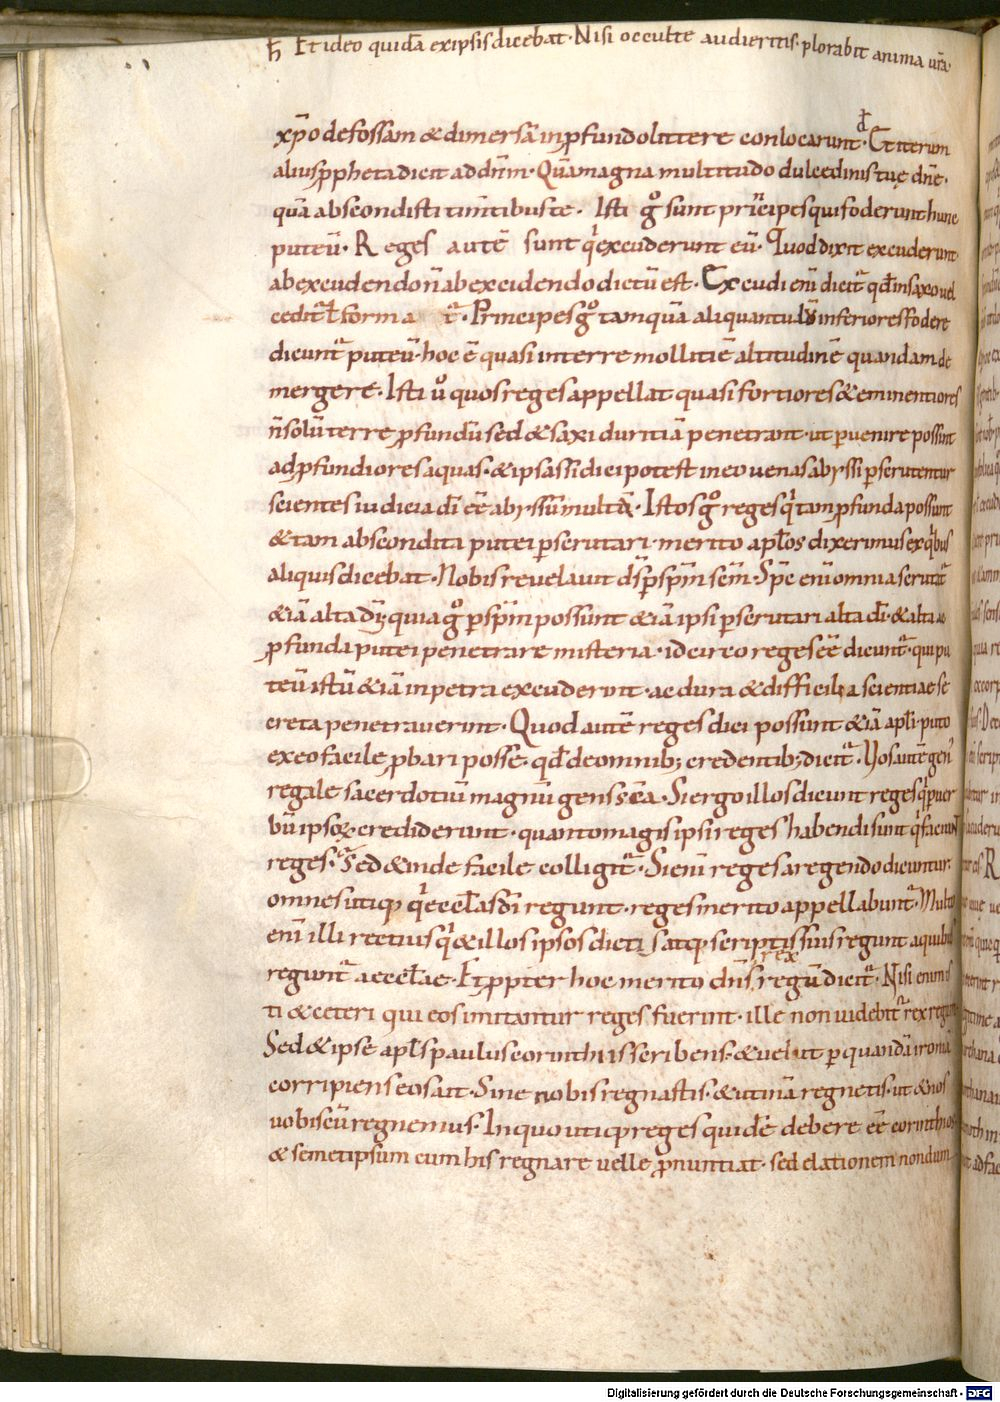 ħ Et ideo quidā ex ipsis dicebat· Nisi occulte audieritis· plorabit anima ur̄a·
xp̄o defossam & dimersā in ꝓfundo littere conlocarunt· Et iterum
đ
alius ꝓpheta dicit ad dn̄m· Quā magna multitudo dulcedinis tuę dn̄e·
quā abscondisti tim̄tibus te· Isti gͦ sunt principes qui foderunt hunc
puteū· Reges autē sunt qͥ excuderunt eū· Quod dixit excuderunt·
ab excudendo n̄ ab excidendo dictū est· Excudi eni̅ dicit᷑ qd̄ in saxo vel
cedit᷑ ł forma t᷑· Principes gͦ tamquā aliquantulū inferiores fodere
dicunt᷑ puteū· hoc ē quasi in terre mollitiē altitudinē quandam de
mergere· Isti ů quos reges appellat quasi fortiores & eminentiores
n̄ solū terre ꝓfundū sed & saxi duritiā penetrant· ut ꝑvenire possint
ad ꝓfundiores aquas· & ipsas si dici potest in eo venas abyssi ꝑscrutentur
scientes iudicia dī eē abyssū multā· Istos gͦ reges qͥ tam ꝓfunda possunt
& tam abscondita putei ꝑscrutari· merito apl̄os dixerimus ex qͥbus
aliquis dicebat· Nobis revelavit ds̄ ꝑ sp̄m sc̄m· Sp̄c eni̅ omnia scrutat᷑
& iā alta dī; quia gͦ ꝑ sp̄m possunt & iā ipsi ꝑscrutari alta dī· & alta ac
ꝓfunda putei penetrare misteria· idcirco reges eē dicunt᷑· qui pu
teū istū & iā in petra excuderint· ac dura & difficilia scientiae se
creta penetraverint· Quod autē reges dici possunt & iā apl̄i· puto
ex eo facile ꝓbari posse· qd̄ de omnib; credentib; dicit᷑· Vos autē gen᷑
regale sacerdotiū magnū gens sc̄a· Si ergo illos dicunt reges qͥ ꝑ ver
bū ipsoꝝ crediderunt· quanto magis ipsi reges habendi sunt qͥ faciunt
reges· Sed & inde facile colligit᷑· Si eni̅ reges a regendo dicuntur·
omnes utiqꝫ qͥ eccl̄as dī regunt· reges merito appellabunt᷑· Multo
eni̅ illi rectius qͥ & illos ipsos dictis atqꝫ scriptis suis regunt a quibus
rex
regunt᷑ aeccl̄ae· Et ꝓpter hoc merito dn̄s regū dicit᷑· Nisi enim is
ti & ceteri qui eos imitantur reges fuerint· ille non videbit᷑ rex regum
Sed & ipse apl̄s paulus corinthiis scribens· & velut ꝑ quandā ironiā
corripiens eos ait· Sine nobis regnastis· & utinā regnetis· ut & nos
vobiscū regnemus· In quo utiqꝫ reges quidē debere eē corinthios
& semetipsum cum his regnare velle ꝓnuntiat· sed elationem nondum
Digitalisierung gefördert durch die Deutsche Forschungsgemeinschaft - DFG